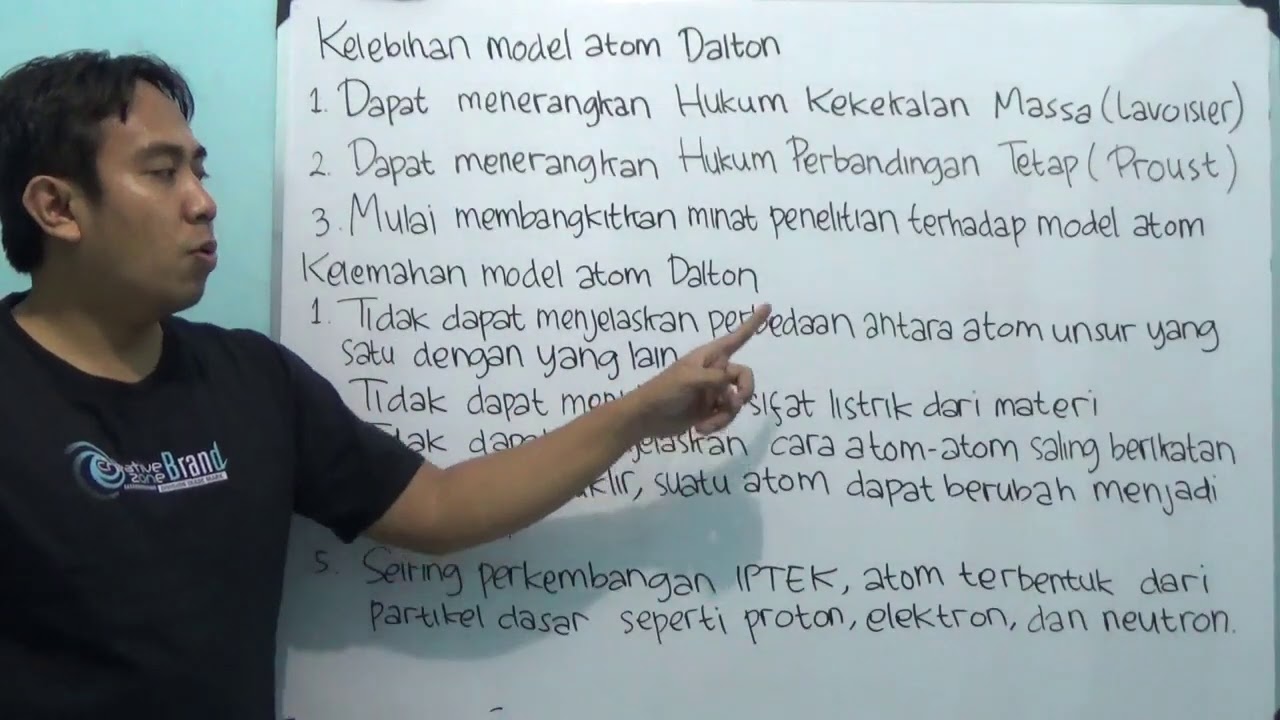 Kelebihan model atom Dalton
1. Dapat menerangkan Hukum Kekekalan Massa (Lavoisier)
2. Dapat menerangkan Hukum Perbandingan Tetap (Proust)
3. Mulai membangkitkan minat penelitian terhadap model atom
Kelemahan model atom Dalton
1. Tidak dapat menjelaskan perbedaan antara atom unsur yang
satu dengan yang lain
Tidak dapat sifat listrik dari materi
cara atom-atom saling berikatan
suatu atom dapat berubah menjadi
5. Seiring perkembangan IPTEK, atom terbentuk dari
partikel dasar seperti proton, elektron, dan neutron.
zone Brand